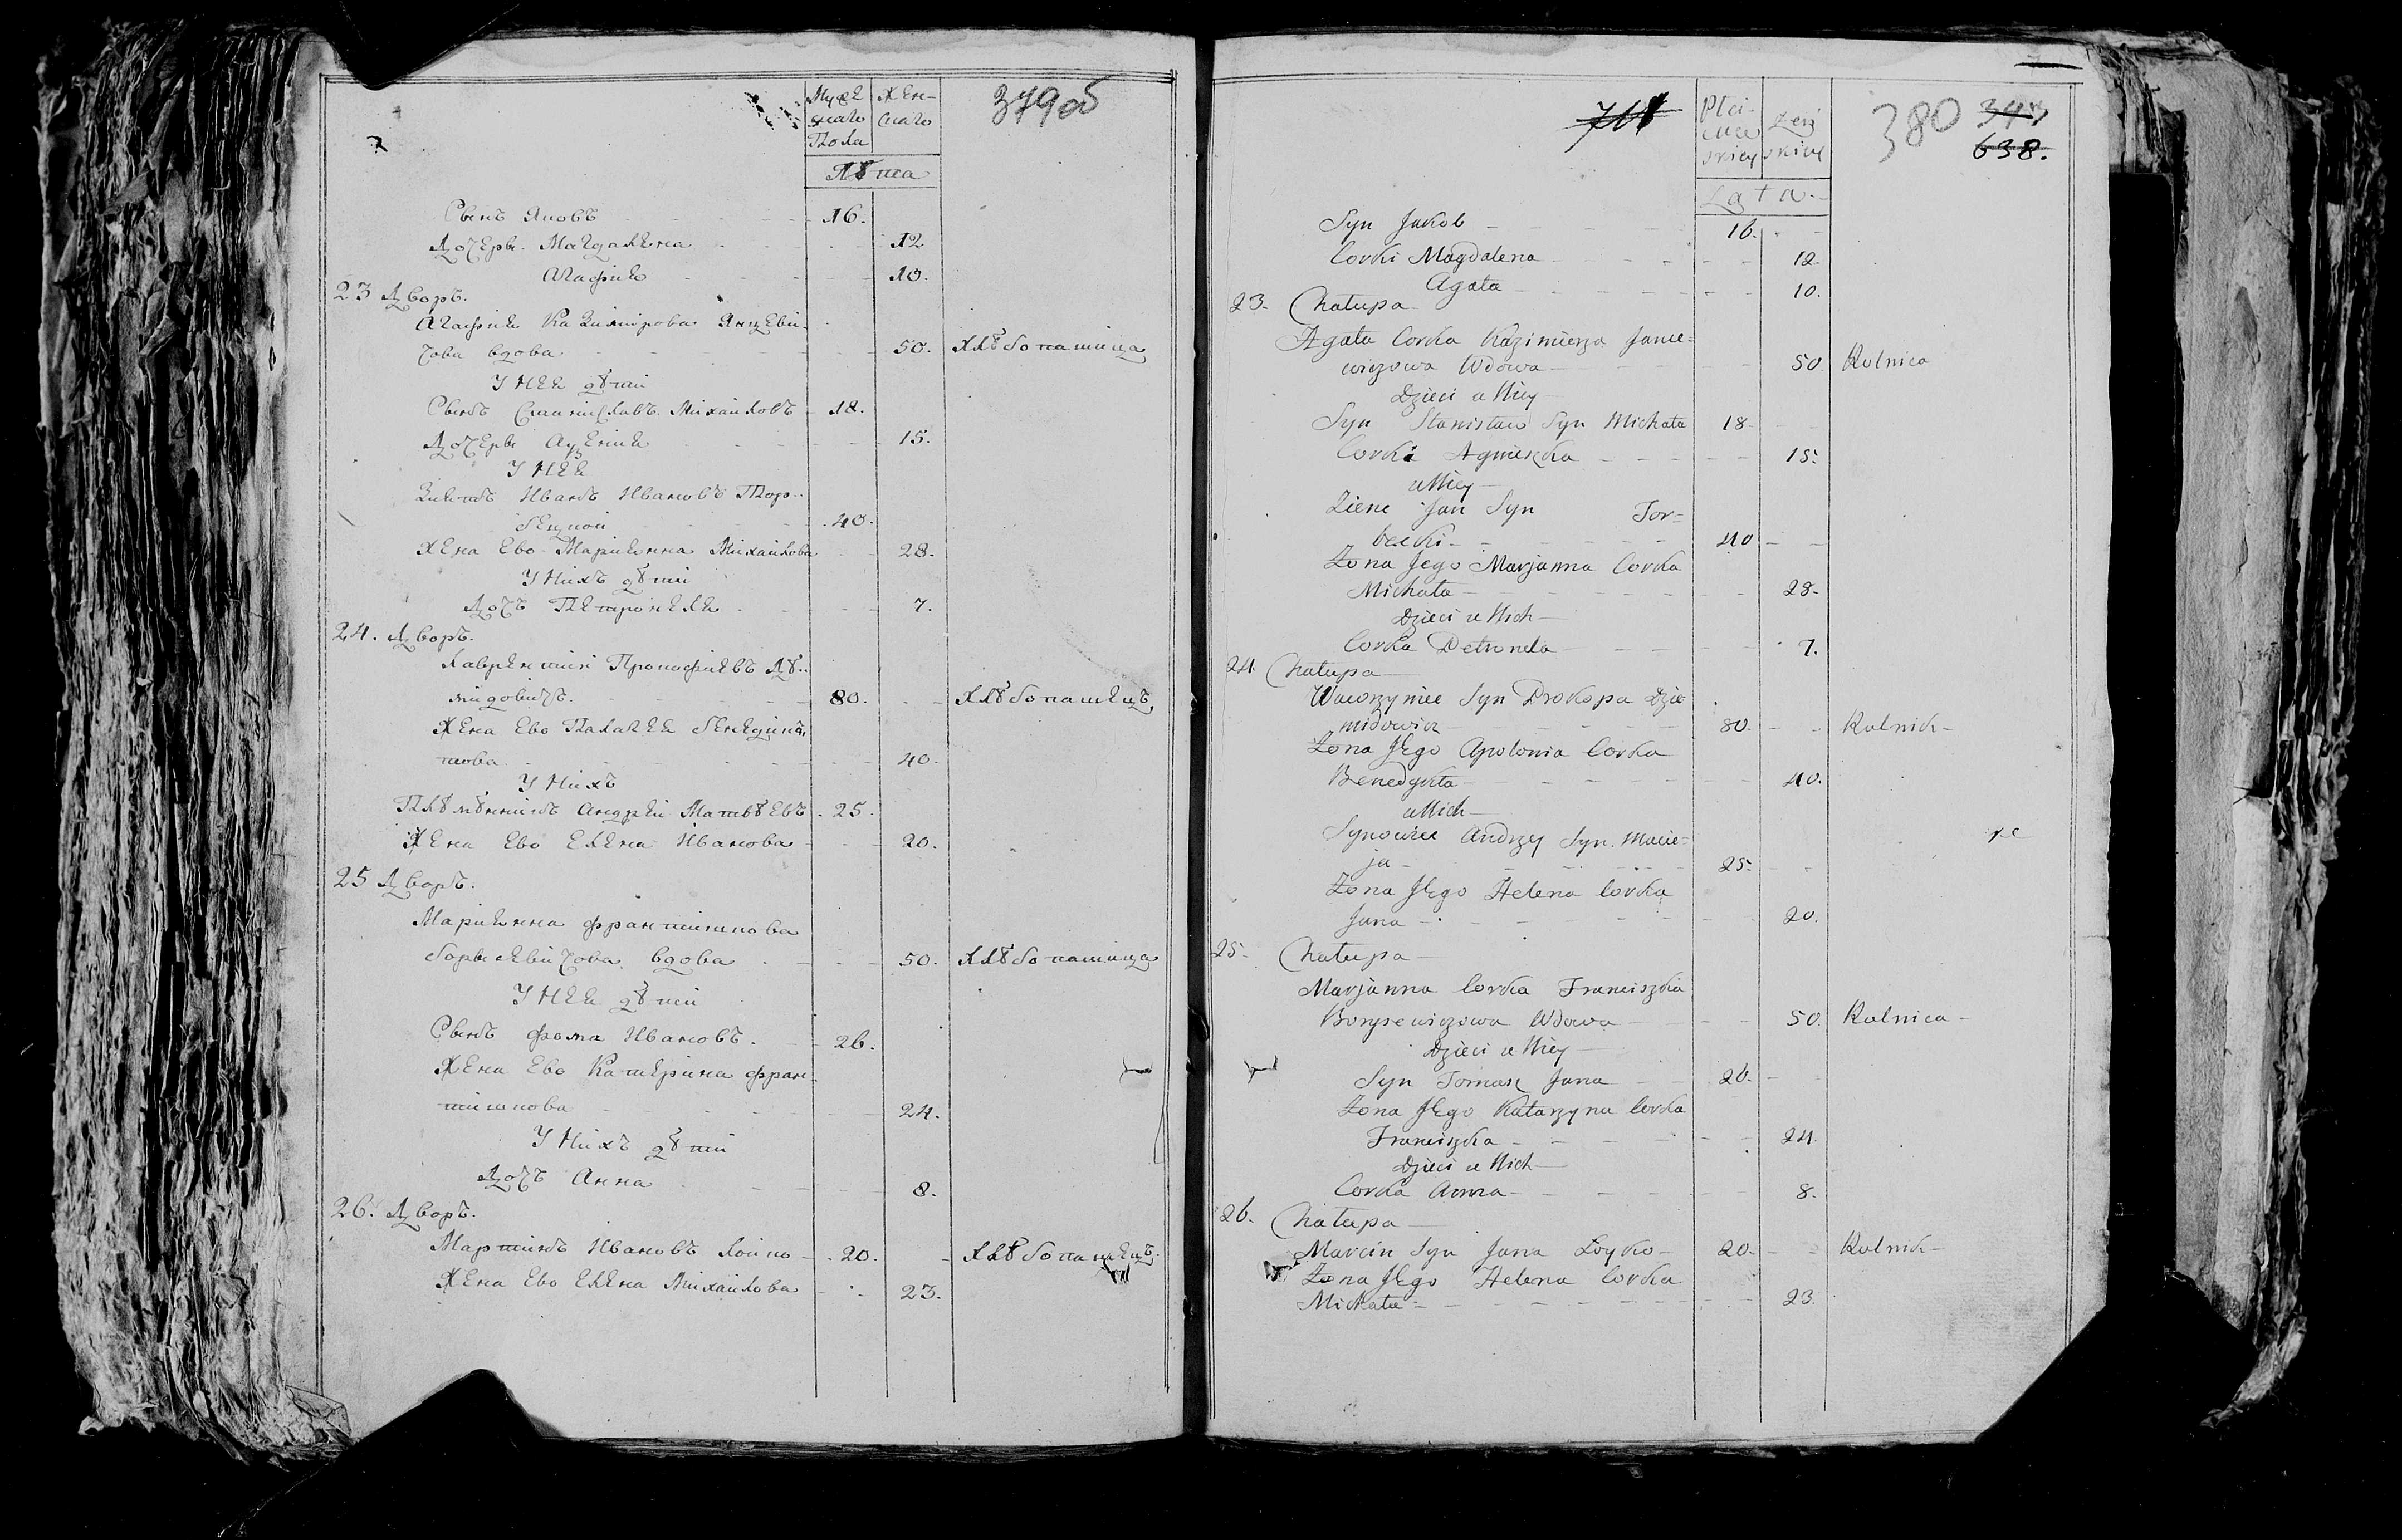 379 об
Мужескаго Пола
Женскаго
Лѣта
Сынъ Яковъ 16.
Дочерь Магдалена 12
Агафия 10.
23 Дворъ.
Агафия Казимирова Янцеви-
чова вдова 50. Хлѣбопашица
У Нее дѣти
Сынъ Станиславъ Михайловъ 18.
Дочерь 15.
У Нее
Зять Иванъ Ивановъ Тор-
бецкой 40.
Жена Ево Марианна Михайлова 28.
У Нихъ дѣти
Дочь Петронеля 7.
24. Дворъ.
Лаврентий Прокофиевъ Дѣ-
мидовичъ. 80. Хлѣбопашецъ
Жена Ево Палагея Бенедик-
това. 40.
У Нихъ
Плѣмѣнникъ Андрей Матвѣевъ 25.
Жена Ево Елена Иванова 20.
25 Дворъ.
Марианна Францишкова
Борысевичова вдова 50. Хлѣбопашица
У Нее дѣти
Сынъ Фома Ивановъ. 26.
Жена Ево Катерина Фран-
цишкова 24.
У Нихъ дѣти
Дочь Анна 8.
26. Дворъ.
Мартинъ Ивановъ Лойко 20. Хлѣбопашецъ.
Жена Ево Елена Михайлова 23.
711
380
343
638.
Płci Męzskiey
Zenskiey
Lata
Syn Jakob 16.
Corki Magdalena 12
Agata 10.
23. Chatupa
Agata Corka Kazimierza Jance=
wiczowa Wdowa 50. Rolnica
Dzieci u Niey
Syn Stanisław Syn Michała 18
Corki Agnieszka 15.
u Niey
Zienc Jan Syn Tor=
becki 40
Zona Jego Marjanna Corka
Michała 28.
Dzieci u Nich
Corka Petronela 7.
24. Chatupa
Wawrzyniec Syn Prokopa Dzie
midowicz 80. Rolnik
Zona Jego Apolonia Corka
Benedykta 40.
u Nich
Synowiec Andrzey Syn Macie=
ja 25.
Zona Jego Helena Corka
Jana 20.
25. Chatupa
Marjanna Corka Franciszka
Borysewiczowa Wdowa 50. Rolnica
Dzieci u Niey
Syn Tomasz Jana 26.
Zona Jego Katarzyna Corka
Franciszka 24.
Dzieci u Nich
Corka Anna 8.
26. Chatupa
Marcin Syn Jana Łoyko 20. Rolnik
Zona Jego Helena Corka
Michała 23.